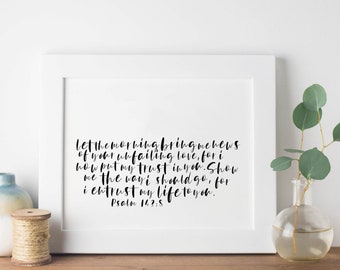 Let the morning bring me news
of your unfailing love, for i
now put my trust in you. Show
me the way i should go, for
i entrust my life to you.
Psalm 143:8